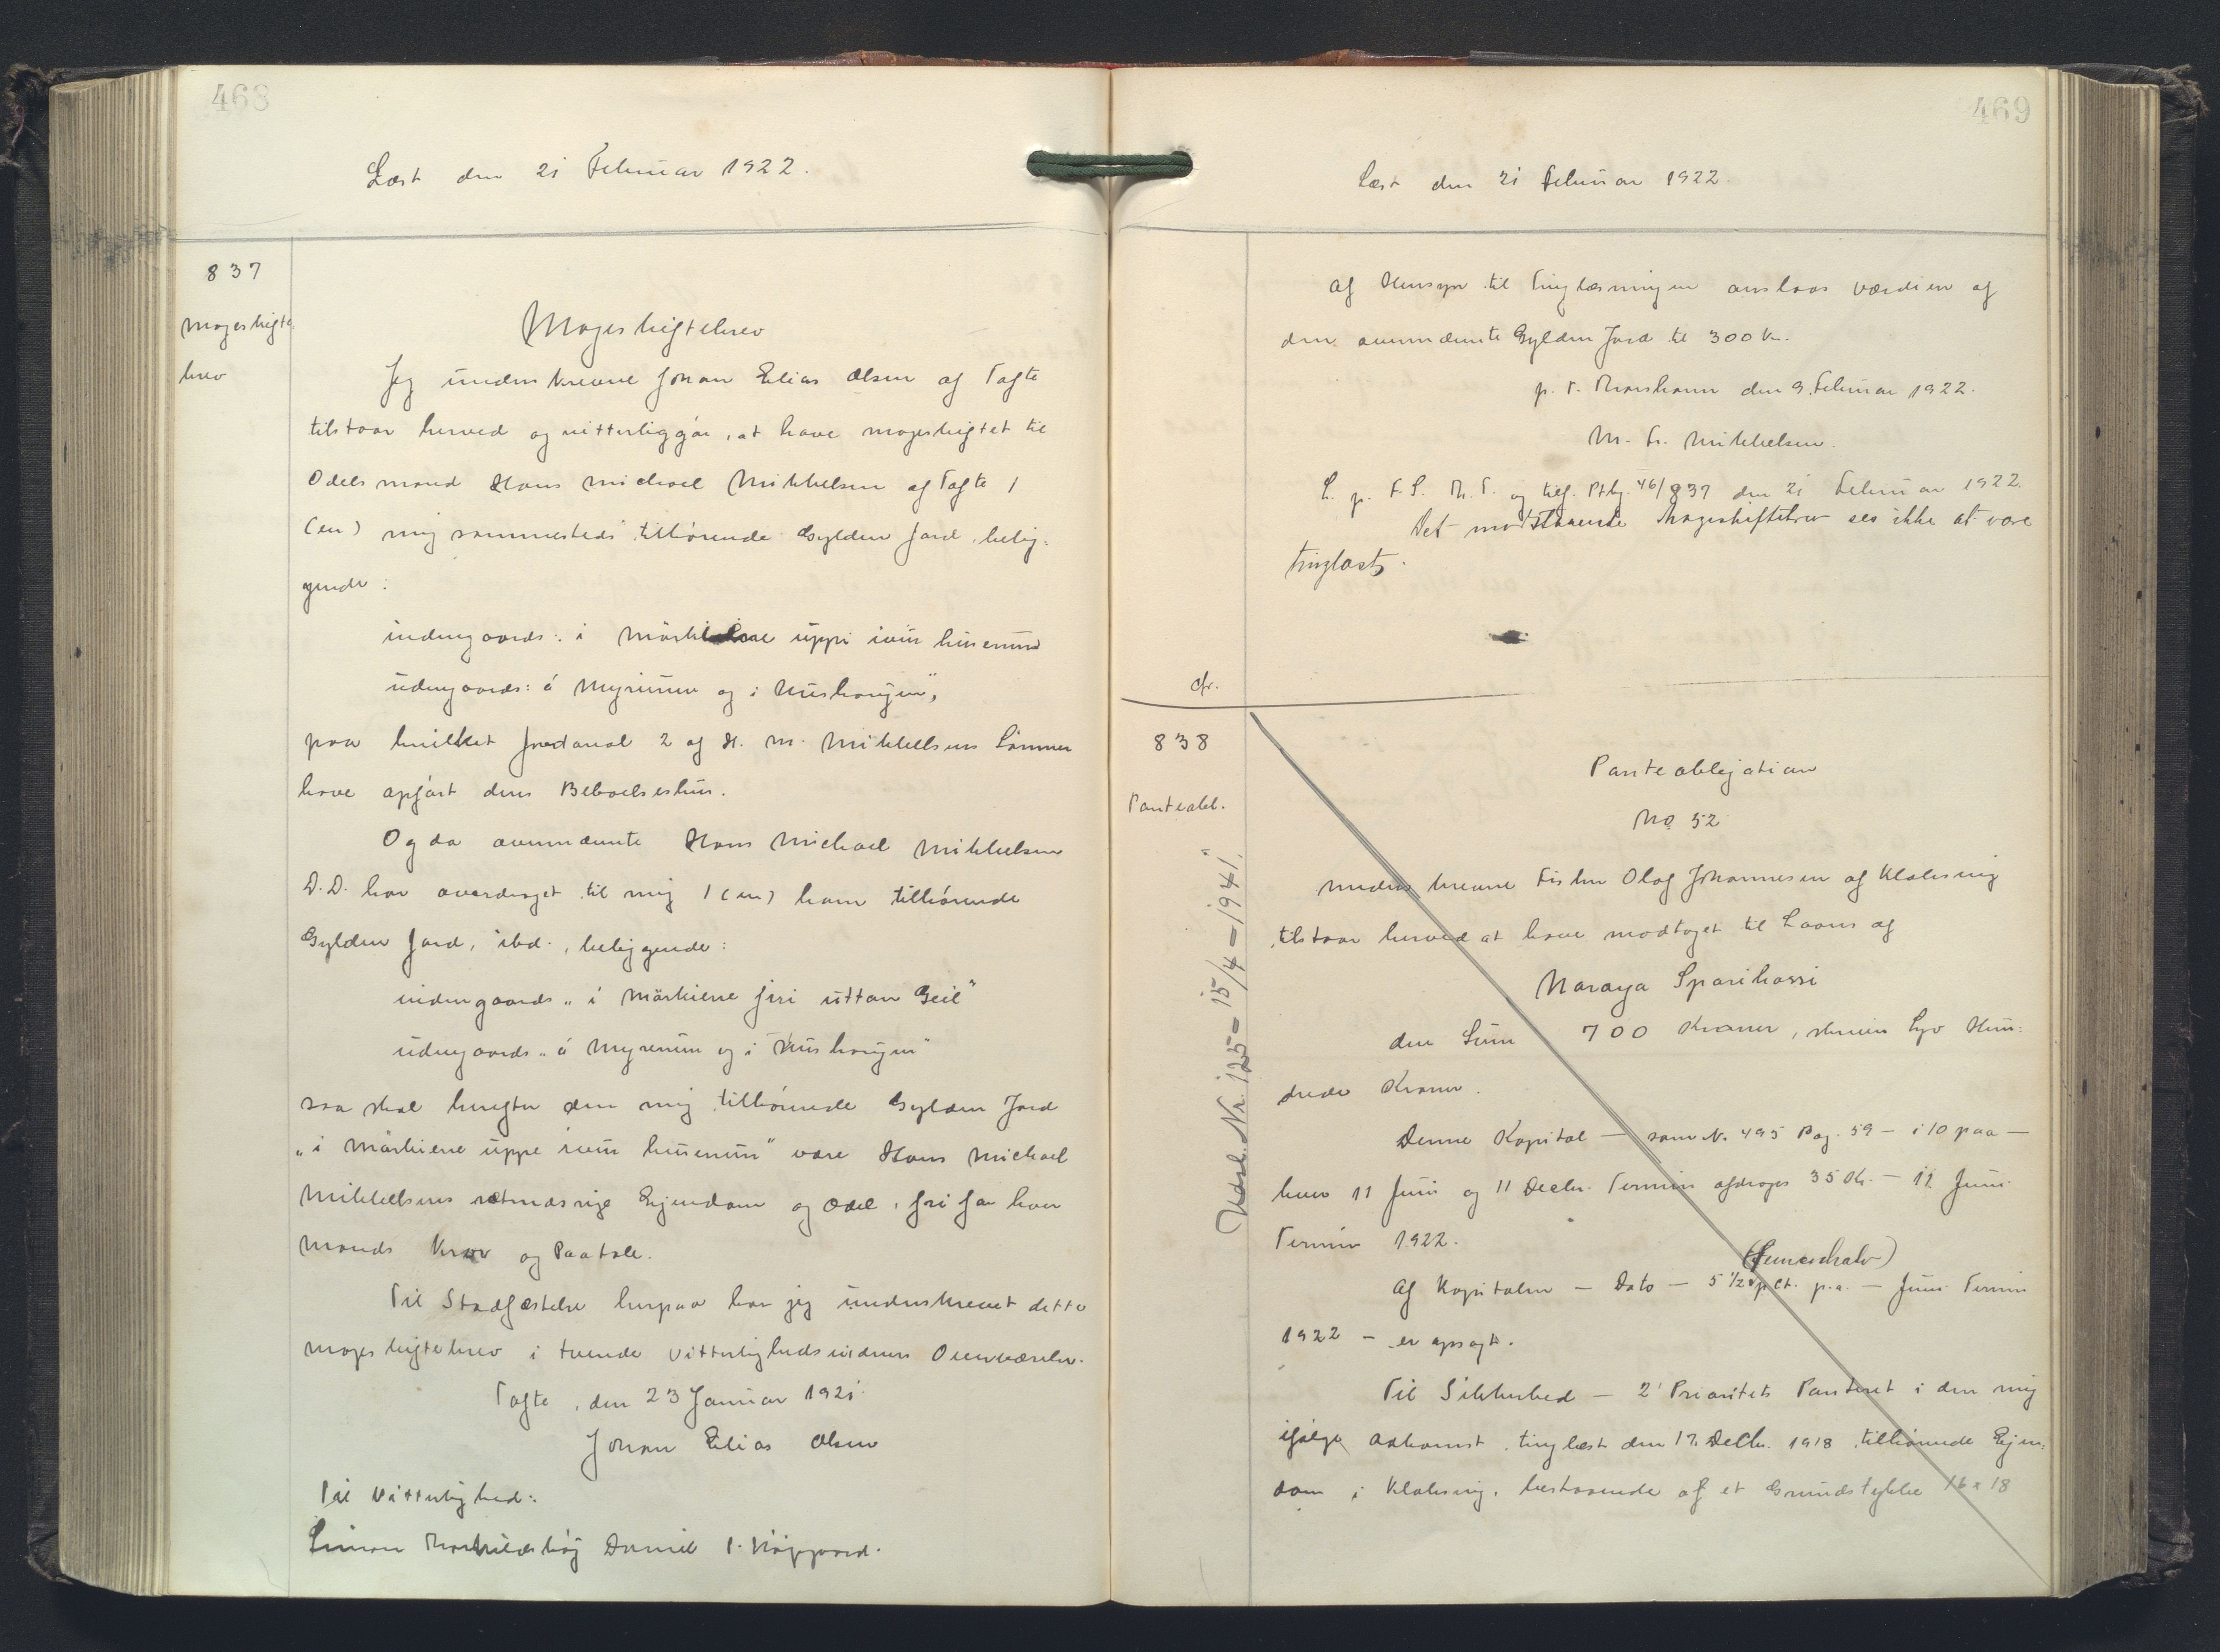 468
Læst den 21 Februar 1922.
837
Mageskifte
brev
Mageskiftebrev
Jeg underskrevne Johan Elias Olsen af Tofte
tilstaar herved og vitterliggör, at have mageskiftet til
Odelsmand Hans Michael Mikkelsen af Tofte 1
(en) mig sammesteds tilhörende Gylden Jord, belig-
gende:
indengaards: i uppi ivur húsenun
udengaards: á Myrenun og i Kushougun",
paa hvilket Jordareal 2 af H. M. Mikkelsens Sönner
have opfört deres Beboelseshus.
Og da ovennævnte Hans Michael Mikkelsen
D.D. har overdraget til mig 1 (en) ham tilhörende
Gylden Jord, ibd., beliggende:
indengaards "i Mörkiene firi uttan Geil"
udengaards "á Myrenun og i Kushougun"
saa skal herefter den mig tilhörende Gylden Jord
"i Mörkiene uppe ivur húsenun" være Hans Michael
Mikkelsens retmæssige Ejendom og Odel, fri for hver
Mands Krav og Paatale.
Til Stadfæstelse herpaa har jeg underskrevet dette
Mageskiftebrev i tvende Vitterlighedsvidners Overværelse.
Tofte, den 23 Januar 1921.
Johan Elias Olsen
Til Vitterlighed:
Simon Daniel P. Höggaard.
469
Læst den 21 Februar 1922.
Af Hensyn til Tinglæsningen anslaas Værdien af
den ovennævnte Gylden Jord til 300 Kr.
p. t. Thorshavn den 9. Februar 1922.
M. Fr. Mikkelsen.
L. p. F. S. Th. T. og tilf. Ptbg. 46/837 den 21 Februar 1922.
Det modstaaende Mageskiftebrev ses ikke at være
tinglæst.
cfr.
838
Panteobl.
Udsl. Nr. 125 - 15/4 - 1941.
Panteobligation
No 52
Underskrevne Fisker Olaf Johannesen af Klaksvig
tilstaar herved at have modtaget til Laans af
Noröya Sparikassi
den Sum 700 Kroner, skriver Syv Hun-
drede Kroner.
Denne Kapital — som No. 495 Pag. 59 — i 10 paa —
hver 11 Juni og 11 Decbr. Termin afdrages 35 Kr. — 11 Juni
Termin 1922.
Af Kapitalen — Dato — 5 1/2 pCt. p.a. — Juni Termin
1922 — er opsagt.
Til Sikkerhed — 2' Prioritets Panteret i den mig
ifølge Adkomst, tinglæst den 17. Decbr. 1918 tilhörende Ejen-
dom i Klaksvig, bestaaende af et Grundstykke 16 x 18